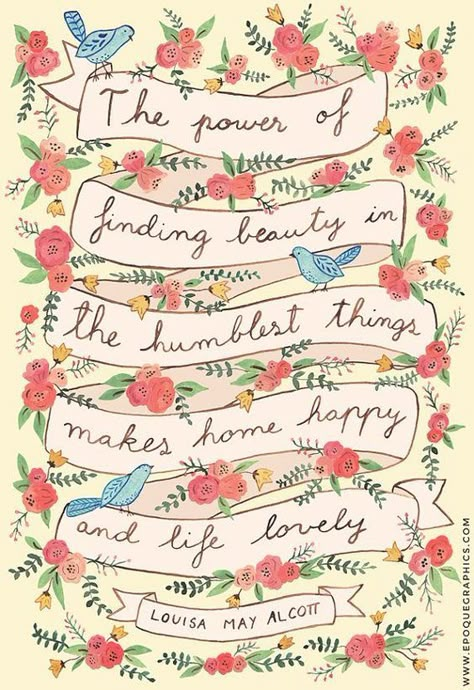 The power of
finding beauty in
the humblest things
makes home happy
and life lovely
LOUISA MAY ALCOTT
WWW.EPOQUEGRAPHICS.COM